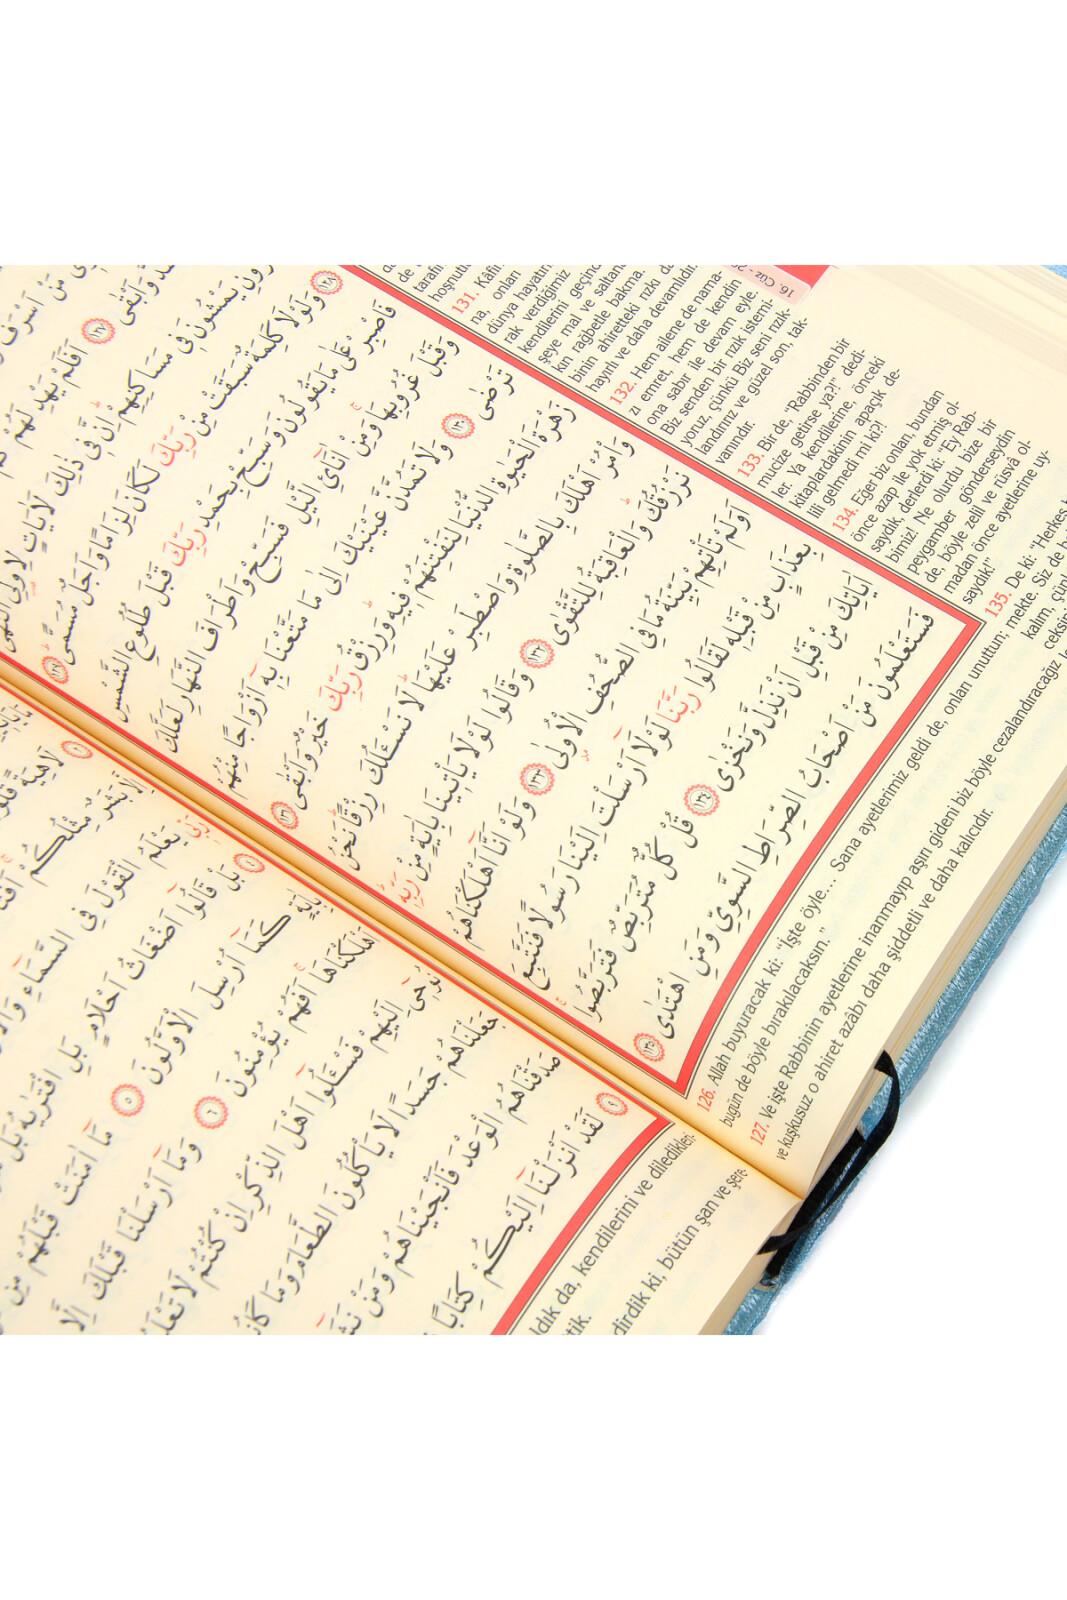 مَنْ اَسْرَفَ
وَاَبْقٰى ﴿١٢٧﴾ اَفَلَمْ يَهْدِ لَهُمْ
يَمْشُونَ فٖى مَسَاكِنِهِمْ اِنَّ فٖى ذٰلِكَ لَاٰيَاتٍ لِاُولِى النُّهٰى
﴿١٢٨﴾ وَلَوْلَا كَلِمَةٌ سَبَقَتْ مِنْ رَبِّكَ لَكَانَ لِزَامًا وَاَجَلٌ مُسَمًّى ﴿١٢٩﴾
فَاصْبِرْ عَلٰى مَا يَقُولُونَ وَسَبِّحْ بِحَمْدِ رَبِّكَ قَبْلَ طُلُوعِ الشَّمْسِ
وَقَبْلَ غُرُوبِهَا وَمِنْ اٰنَآئِ الَّيْلِ فَسَبِّحْ وَاَطْرَافَ النَّهَارِ لَعَلَّكَ
تَرْضٰى ﴿١٣٠﴾ وَلَا تَمُدَّنَّ عَيْنَيْكَ اِلٰى مَا مَتَّعْنَا بِهٖٓ اَزْوَاجًا مِنْهُمْ
زَهْرَةَ الْحَيٰوةِ الدُّنْيَا لِنَفْتِنَهُمْ فٖيهِ وَرِزْقُ رَبِّكَ خَيْرٌ وَاَبْقٰى ﴿١٣١﴾
وَاْمُرْ اَهْلَكَ بِالصَّلٰوةِ وَاصْطَبِرْ عَلَيْهَا لَا نَسْـَٔلُكَ رِزْقًا نَحْنُ
نَرْزُقُكَ وَالْعَاقِبَةُ لِلتَّقْوٰى ﴿١٣٢﴾ وَقَالُوا لَوْلَا يَاْتٖينَا بِاٰيَةٍ مِنْ رَبِّهٖ
اَوَلَمْ تَاْتِهِمْ بَيِّنَةُ مَا فِى الصُّحُفِ الْاُولٰى ﴿١٣٣﴾ وَلَوْ اَنَّٓا اَهْلَكْنَاهُمْ
بِعَذَابٍ مِنْ قَبْلِهٖ لَقَالُوا رَبَّنَا لَوْلَٓا اَرْسَلْتَ اِلَيْنَا رَسُولًا فَنَتَّبِعَ
اٰيَاتِكَ مِنْ قَبْلِ اَنْ نَذِلَّ وَنَخْزٰى ﴿١٣٤﴾ قُلْ كُلٌّ مُتَرَبِّصٌ فَتَرَبَّصُوا
فَسَتَعْلَمُونَ مَنْ اَصْحَابُ الصِّرَاطِ السَّوِىِّ وَمَنِ اهْتَدٰى ﴿١٣٥﴾
16. Cüz
hoşnutlu
131. Kâfi
na, onları
dünya hayatın
rak verdiğimiz
kendilerini geçind
şeye mal ve saltana
kın rağbetle bakma.
binin ahiretteki rızkı da
hayırlı ve daha devamlıdır.
132. Hem ailene de nama-
zı emret, hem de kendin
ona sabır ile devam eyle.
Biz senden bir rızık istemi-
yoruz, çünkü Biz seni rızık-
landırırız ve güzel son, tak-
vanındır.
133. Bir de, "Rabbinden bir
mucize getirse ya?!" dedi-
ler. Ya kendilerine, önceki
kitaplardakinin apaçık de-
lili gelmedi mi ki?!
134. Eğer biz onları, bundan
önce azap ile yok etmiş ol-
saydık, derlerdi ki: "Ey Rab-
bimiz! Ne olurdu bize bir
peygamber gönderseydin
de, böyle zelil ve rüsvâ ol-
madan önce ayetlerine uy-
saydık!"
135. De ki: "Herkes b
mekte. Siz de b
kalım, çünk
ceksin
126. Allah buyuracak ki: "İşte öyle... Sana ayetlerimiz geldi de, onları unuttun;
bugün de böyle bırakılacaksın."
127. Ve işte Rabbinin ayetlerine inanmayıp aşırı gideni biz böyle cezalandıracağız
ve kuşkusuz o ahiret azâbı daha şiddetli ve daha kalıcıdır.
﴿١﴾
لَاهِيَةً قُلُو
اِلَّا بَشَرٌ مِثْلُكُمْ
يَعْلَمُ الْقَوْلَ فِى السَّمَٓاءِ
﴿٤﴾ بَلْ قَالُٓوا اَضْغَاثُ اَحْلَامٍ بَلِ افْتَرٰيهُ بَلْ
كَمَٓا اُرْسِلَ الْاَوَّلُونَ ﴿٥﴾ مَٓا اٰمَنَتْ قَبْلَهُمْ مِنْ
اَهْلَكْنَاهَا اَفَهُمْ يُؤْمِنُونَ ﴿٦﴾ وَمَٓا اَرْسَلْنَا قَبْلَكَ اِلَّا
نُوحٖٓى اِلَيْهِمْ فَسْـَٔلُٓوا اَهْلَ الذِّكْرِ اِنْ كُنْتُمْ لَا تَعْلَ
جَعَلْنَاهُمْ جَسَدًا لَا يَاْكُلُونَ الطَّعَامَ وَمَا كَانُ
صَدَقْنَاهُمُ الْوَعْدَ فَاَنْجَيْنَاهُمْ وَمَنْ نَشَ
﴿٩﴾ لَقَدْ اَنْزَلْنَٓا اِلَيْكُمْ كِتَابًا
ldık da, kendilerini ve diledikleri-
tik.
dirdik ki, bütün şan ve şere-